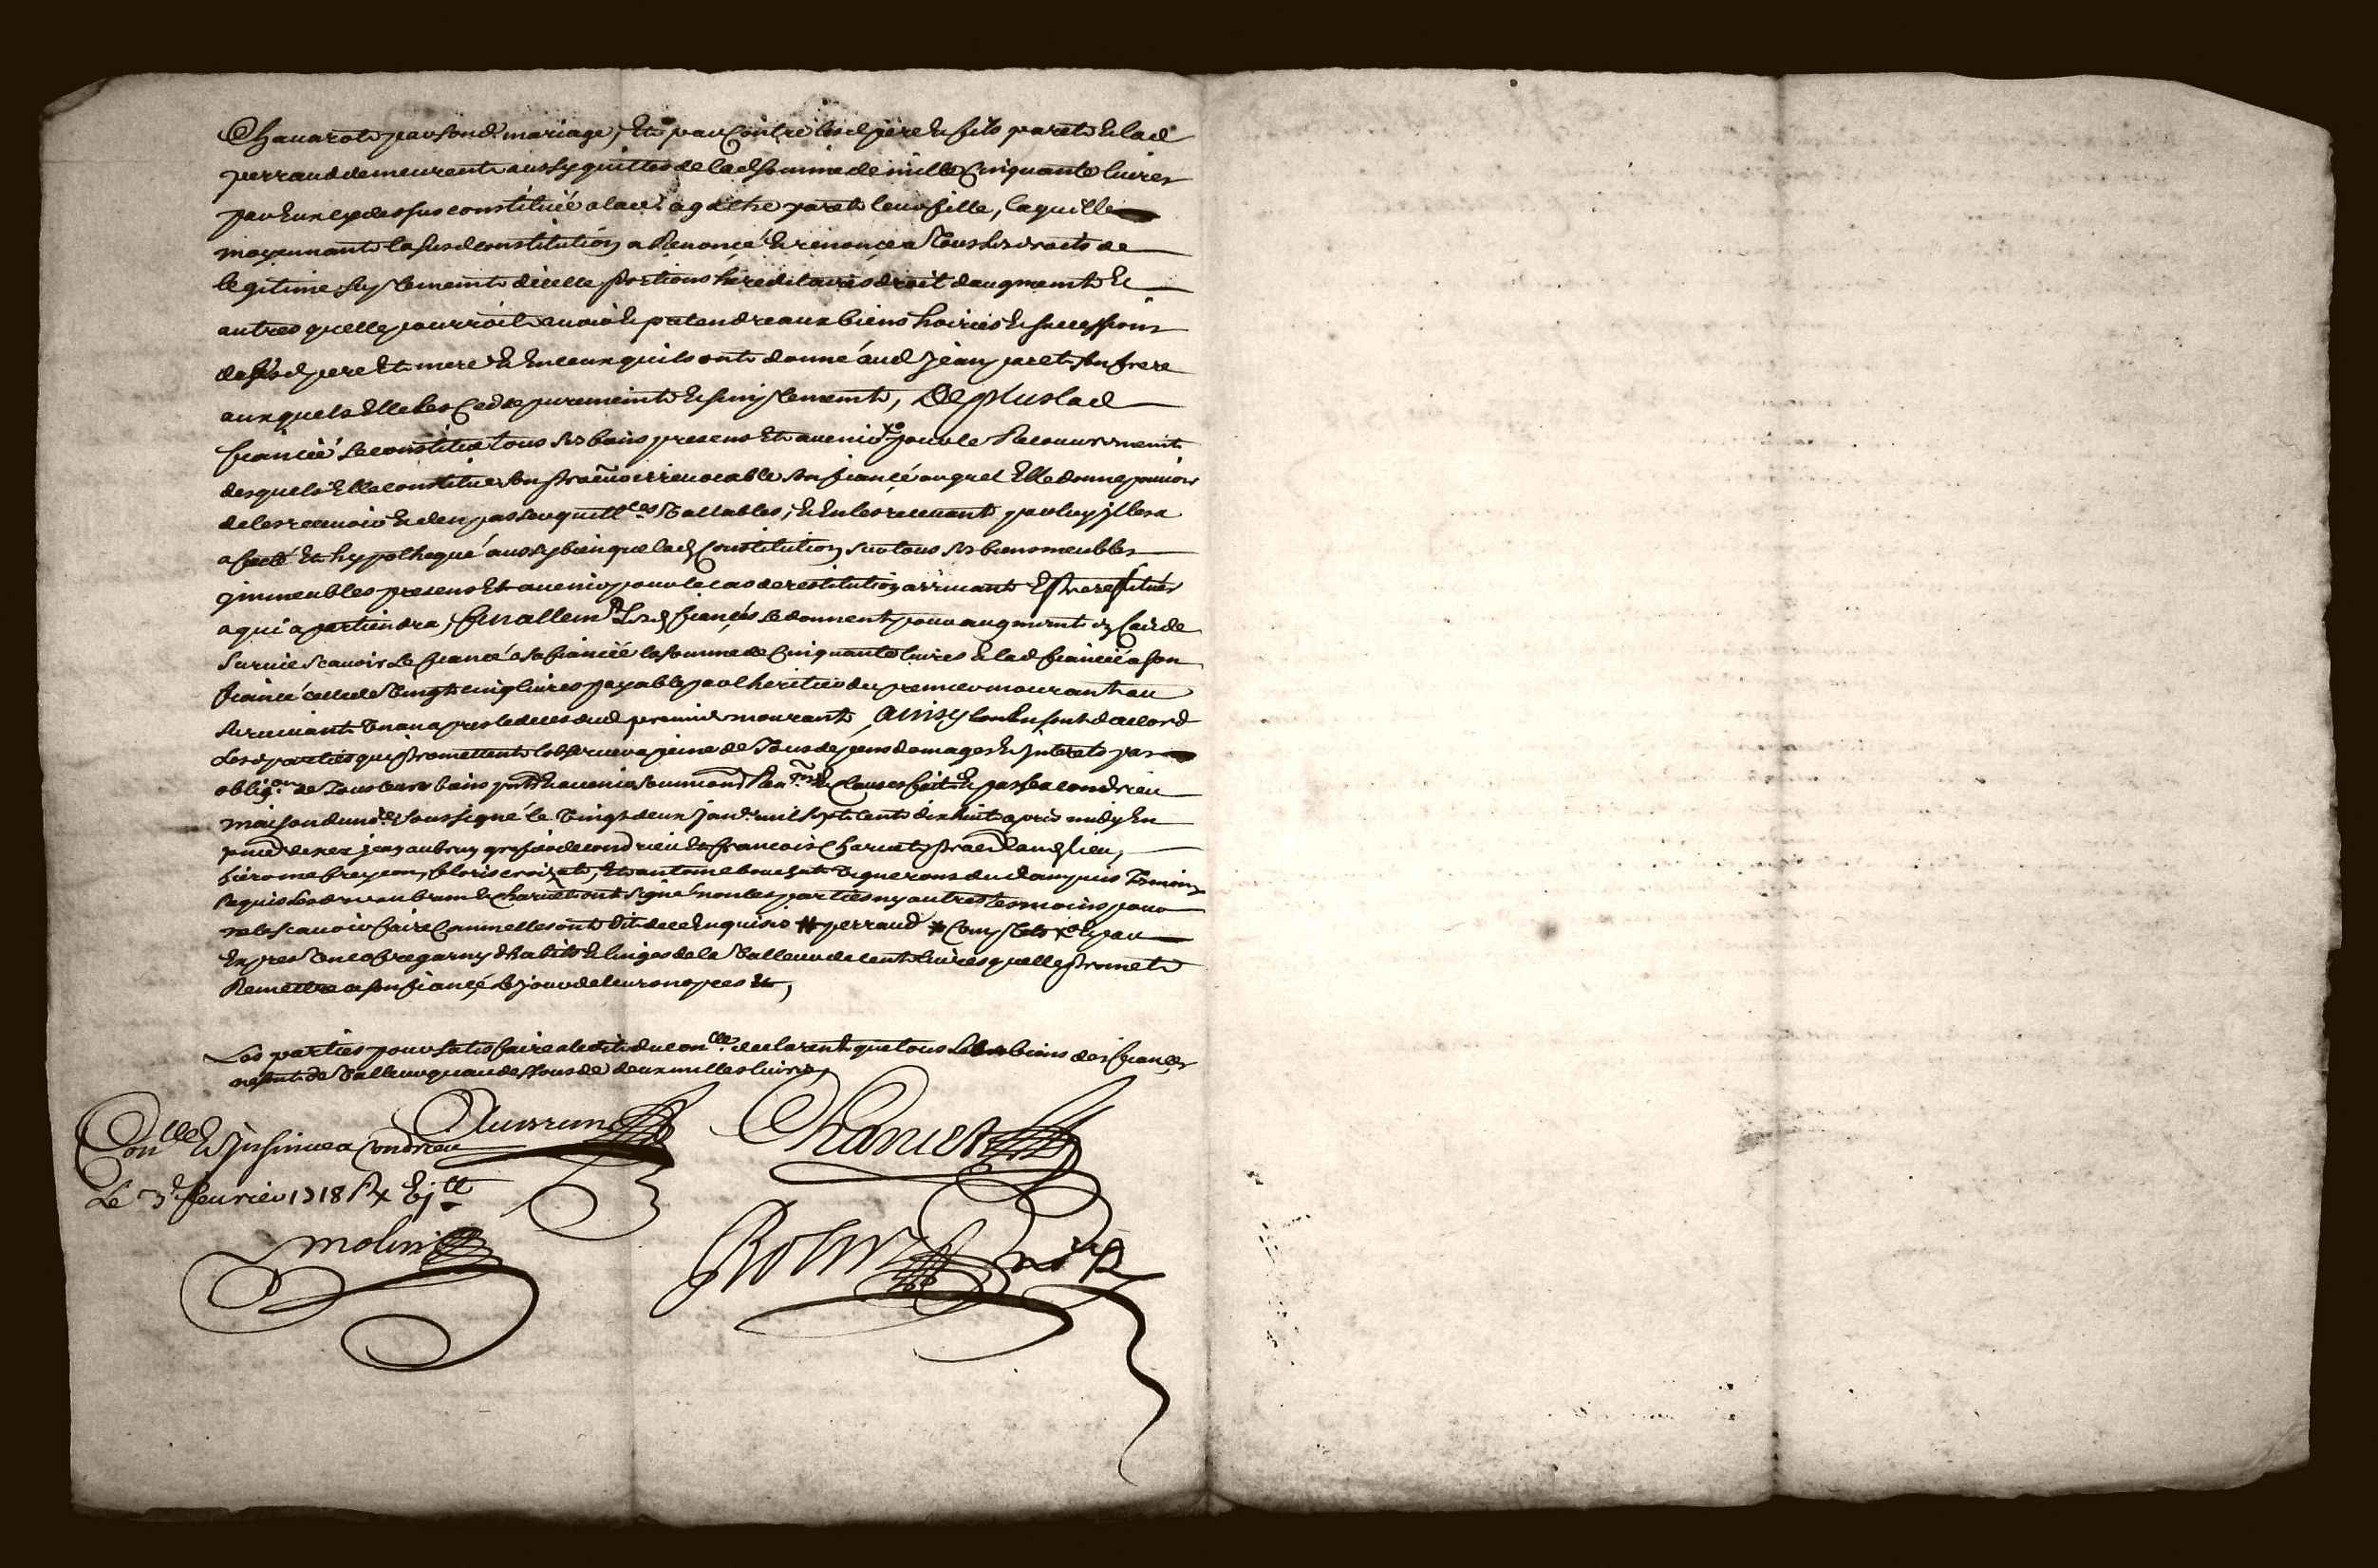 Chavarot par sond mariage, Et par Contre lesd pere & fils paret & lad
perraud demeurent aussy quittes de lad somme de mille Cinquante livres
par Eux cy dessus constituée a lad agathe paret leur fille, laquelle
moyennant la susd constitution a Renoncé & renonce a Tous ses droits de
legitime suplement dicelle portions hereditaires droit daugment &
autres quelle pourroit avoir & pretendre aux biens hoiries & successions
de sesd pere Et mere & En ceux quils ont donné aud jean paret son frere
auxquels Elle les Cedde purement & simplement, De plus lad
fiancée se constitue tous ses biens presens Et avenir xo pour le Recouvrement
desquels Elle constitue son procur irrevocable son fiancé auquel Elle donne pouvoir
de les recevoir & den passer quittces Vallables, & En les recevant par luy jl sera
afecté Et hypothequé aussy bien que lad Constitution sur tous ses biens meubles
jmmeubles presens Et avenir pour le cas de restitution arrivant Estre restitués
a qui apartiendra, finallemt Lesd fiancés se donnent pour augment En Cas de
survie scavoir Le fiancé a sa fiancée la somme de Cinquante livres & lad fiancée a son
fiancé celle de Vingt cinq livres payable par lheritier du premier mourant au
survivant Un an apres le deces dud premier mourant, Ainsy lont En sont daccord
Lesd parties qui promettent lobserver a peine de Tous depens domages & jnterets par
oblig.on de Tous leurs biens pnts & avenir soumions Renons & clauses fait & passé a condrieu
maison du nre soussigné le Vingt deux janr mil sept cent dix huit apres midy En
pnce de sr jean aubrun grefier de condrieu Et francois Charvet praen aud lieu,
hierome freycon, floris croizat, Et antoine bouchet Vignerons dud ampuis Temoins
Requis Lesd srs aubrun & Charvet ont signé non les parties ny autres temoins pour
ne le scavoir faire Comme elles ont dit de ce Enquis # perraud # Complets xo & par
Expres Un cofre garny dhabits & linges de la Valleur de cent livres quelle promet
Remettre a son fiancé le jour de leurs nopces Et,
Les parties pour satisfaire a ledit du conlle declarent que tous Les biens des fiances
ne sont de Valleur quau dessous de deux milles livres,
Aubrun
Charvet
Conllé & jnsinué a Condrieu
Le 3e fevrier 1718 R
molin
Robin nre R